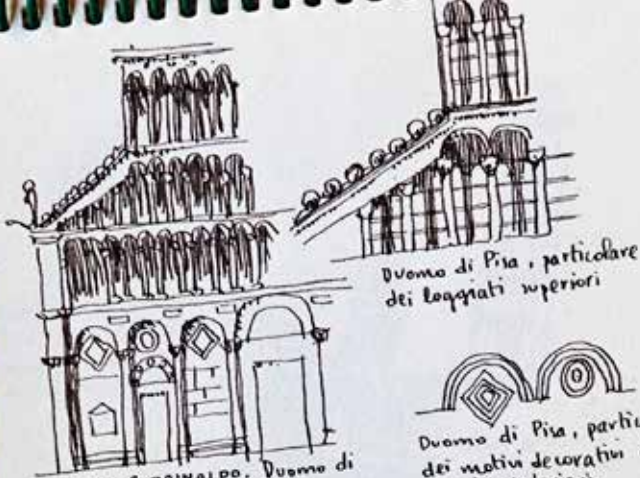 Duomo di Pisa, particolare
dei loggiati superiori
Duomo di Pisa,
dei motivi decorativi
Duomo di